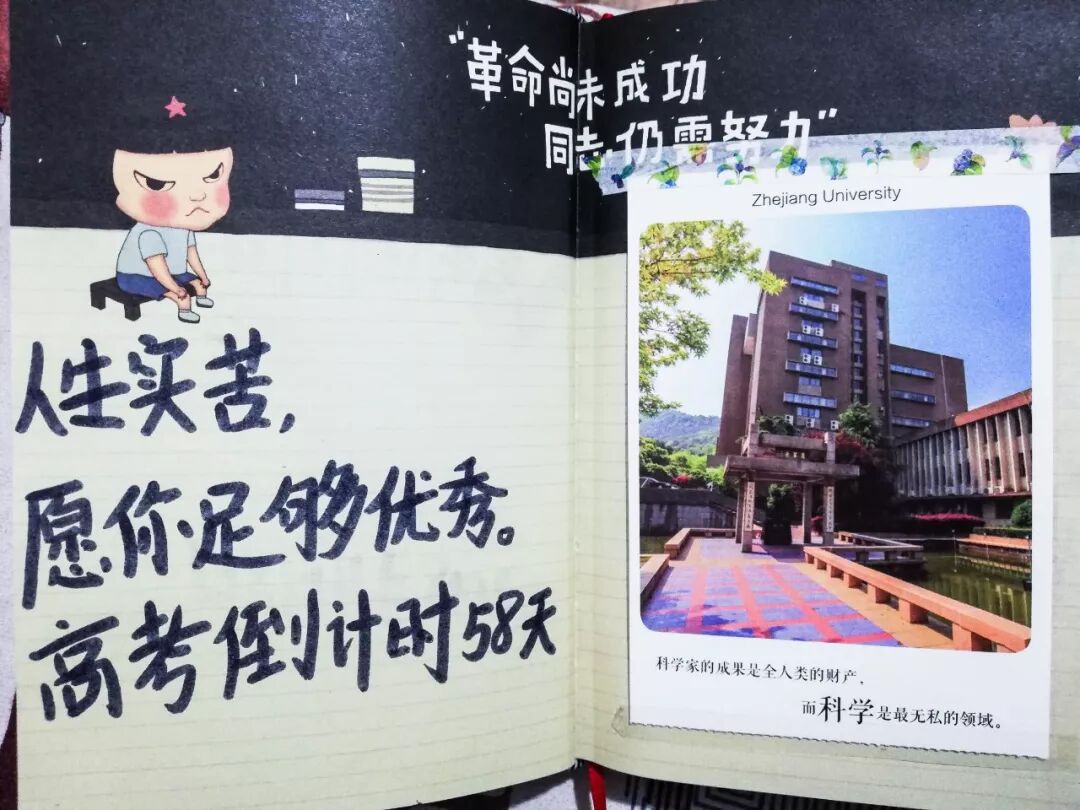 “革命尚未成功
同志仍需努力”
人生实苦，
愿你足够优秀。
高考倒计时58天
Zhejiang University
科学家的成果是全人类的财产，
而科学是最无私的领域。